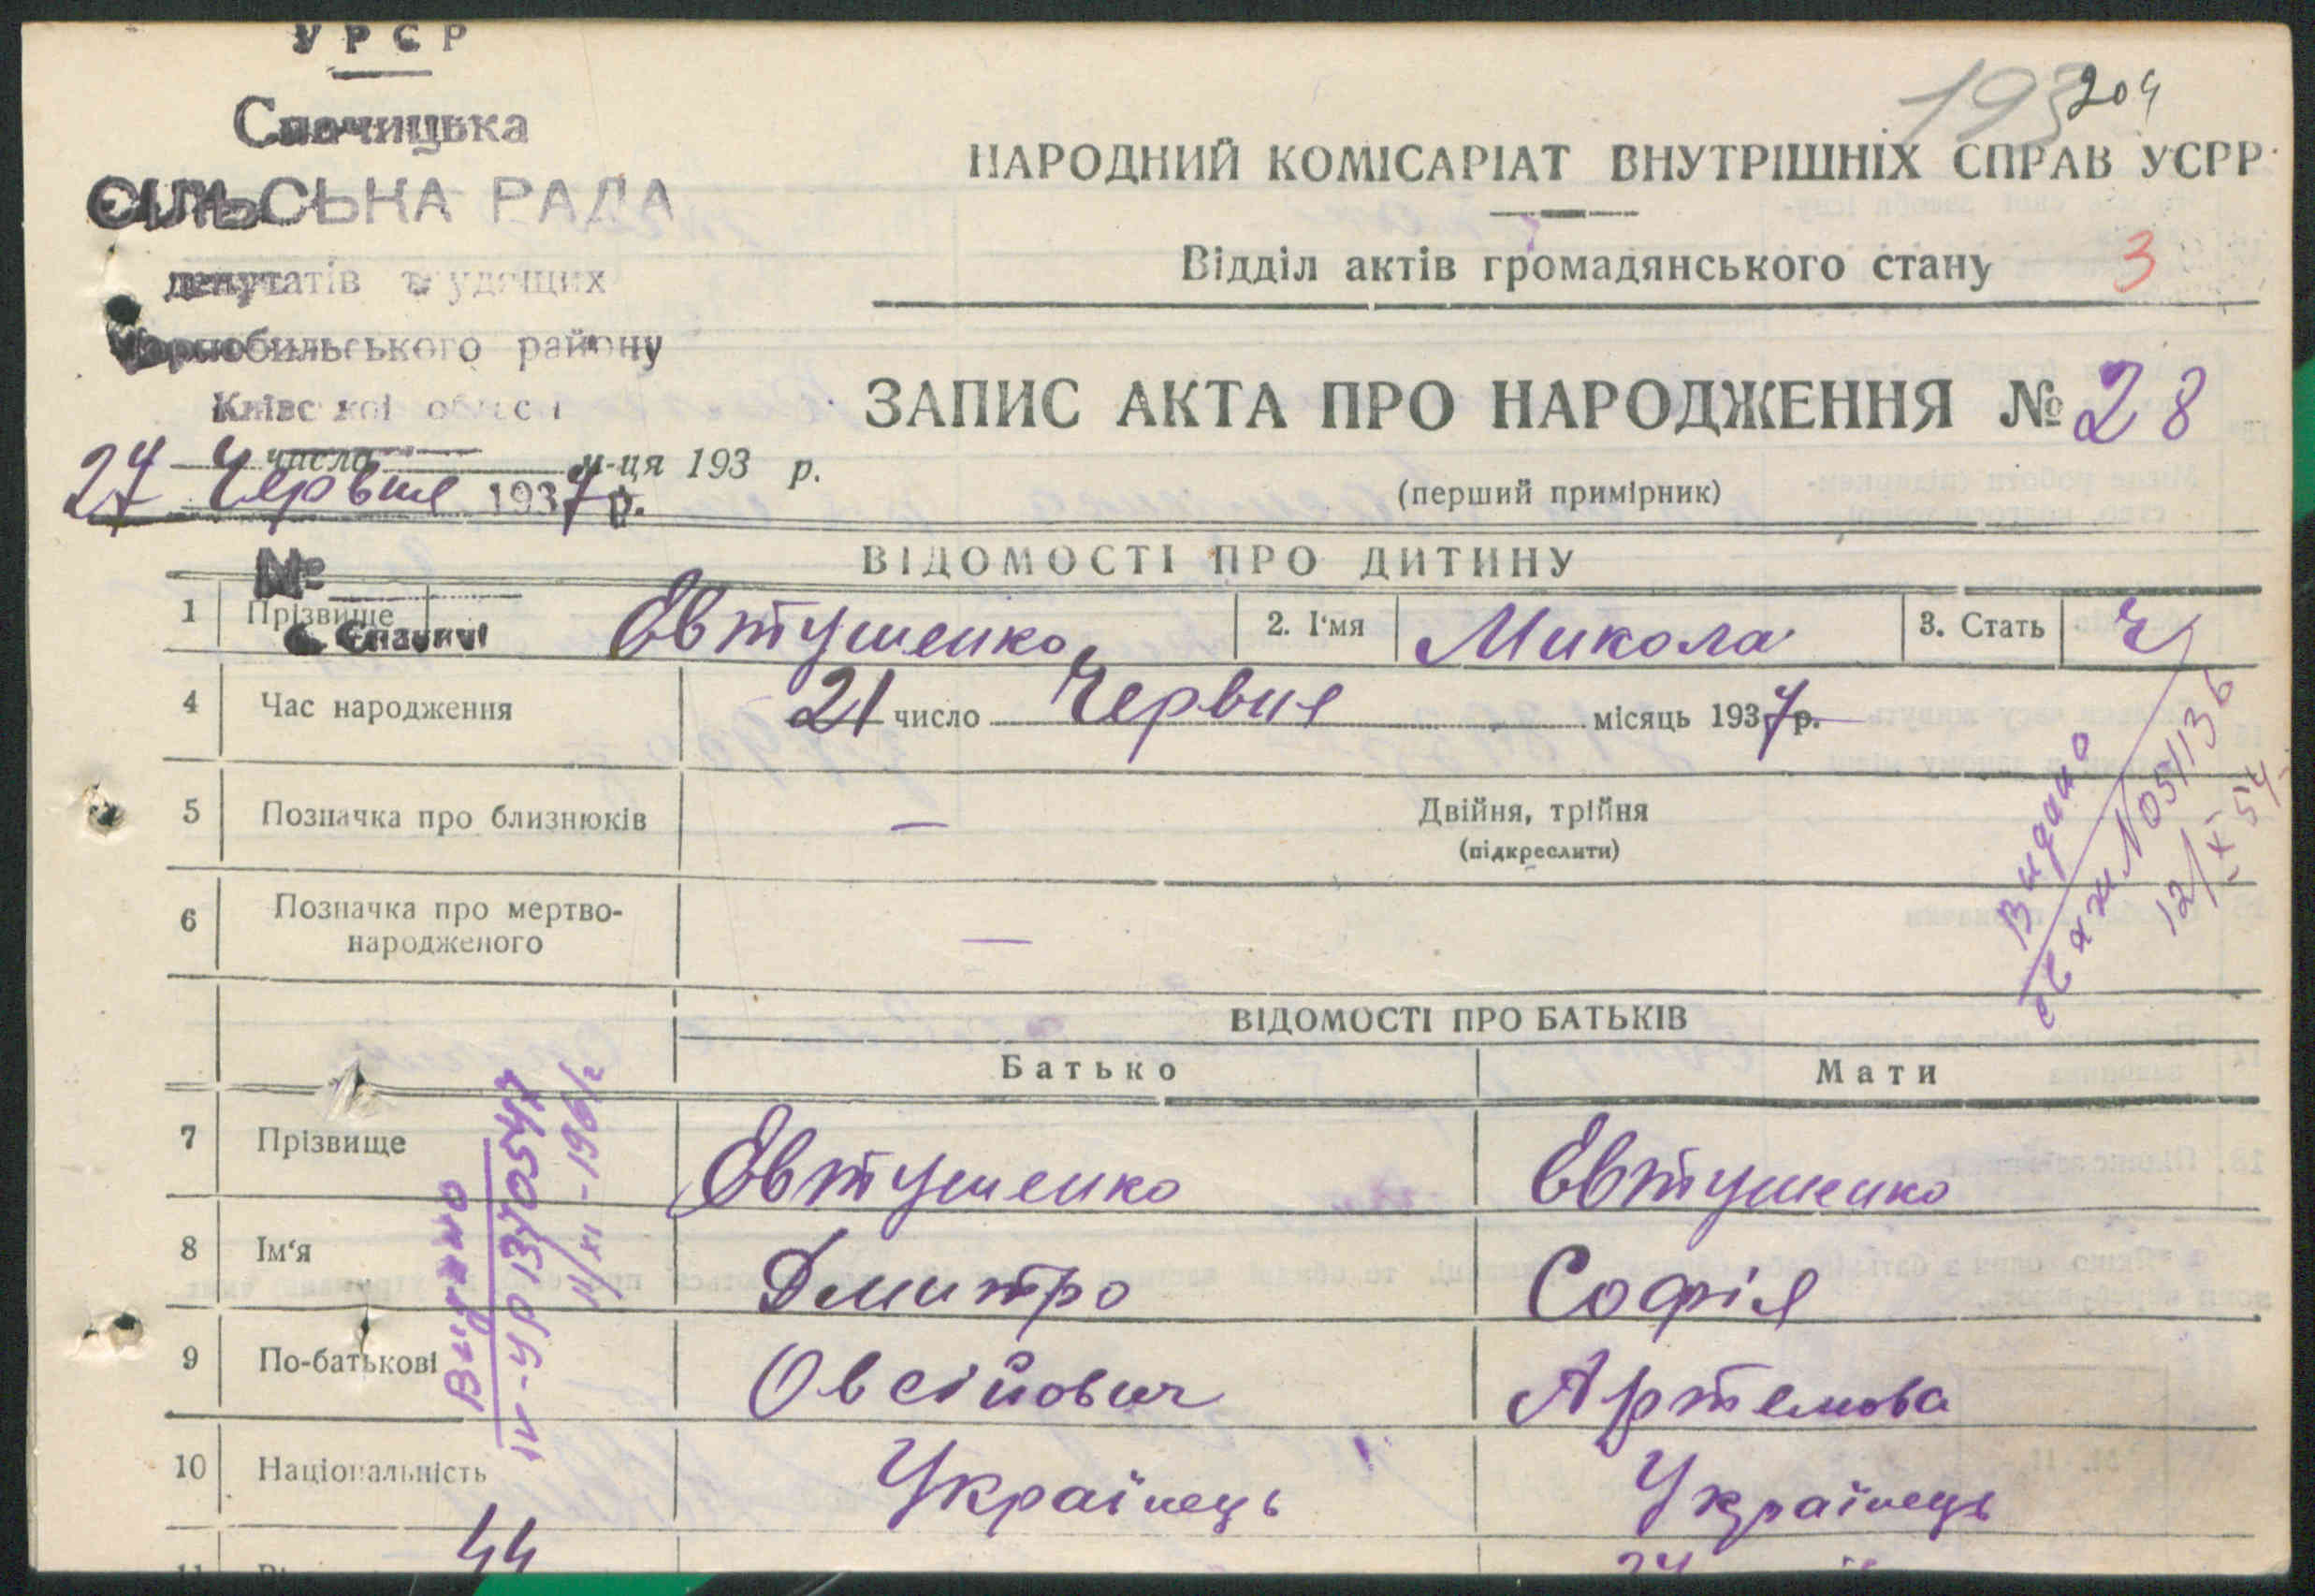 УРСР
Спачицька
СІЛЬСЬКА РАДА
депутатів трудящих
Чорнобильського району
Київської області
число м-ця 193 р.
27 Червня 1937 р.
№
с. Спачичі
193 204
НАРОДНИЙ КОМІСАРІАТ ВНУТРІШНІХ СПРАВ УСРР
Відділ актів громадянського стану 3
ЗАПИС АКТА ПРО НАРОДЖЕННЯ № 28
(перший примірник)
ВІДОМОСТІ ПРО ДИТИНУ
1 Прізвище Євтушенко 2. І'мя Микола 3. Стать ч
4 Час народження 21 число Червня місяць 1937 р.
5 Позначка про близнюків — Двійня, трійня
(підкреслити)
6 Позначка про мертво-
народженого —
Видано
№ 051136
12/XI 54
ВІДОМОСТІ ПРО БАТЬКІВ
Батько Мати
7 Прізвище Євтушенко Євтушенко
8 Ім'я Дмитро Софія
9 По-батькові Овсійович Артемова
10 Національність Українець Українець
Видано
IV-УР 1370547
11/XI-1966 г
44
11